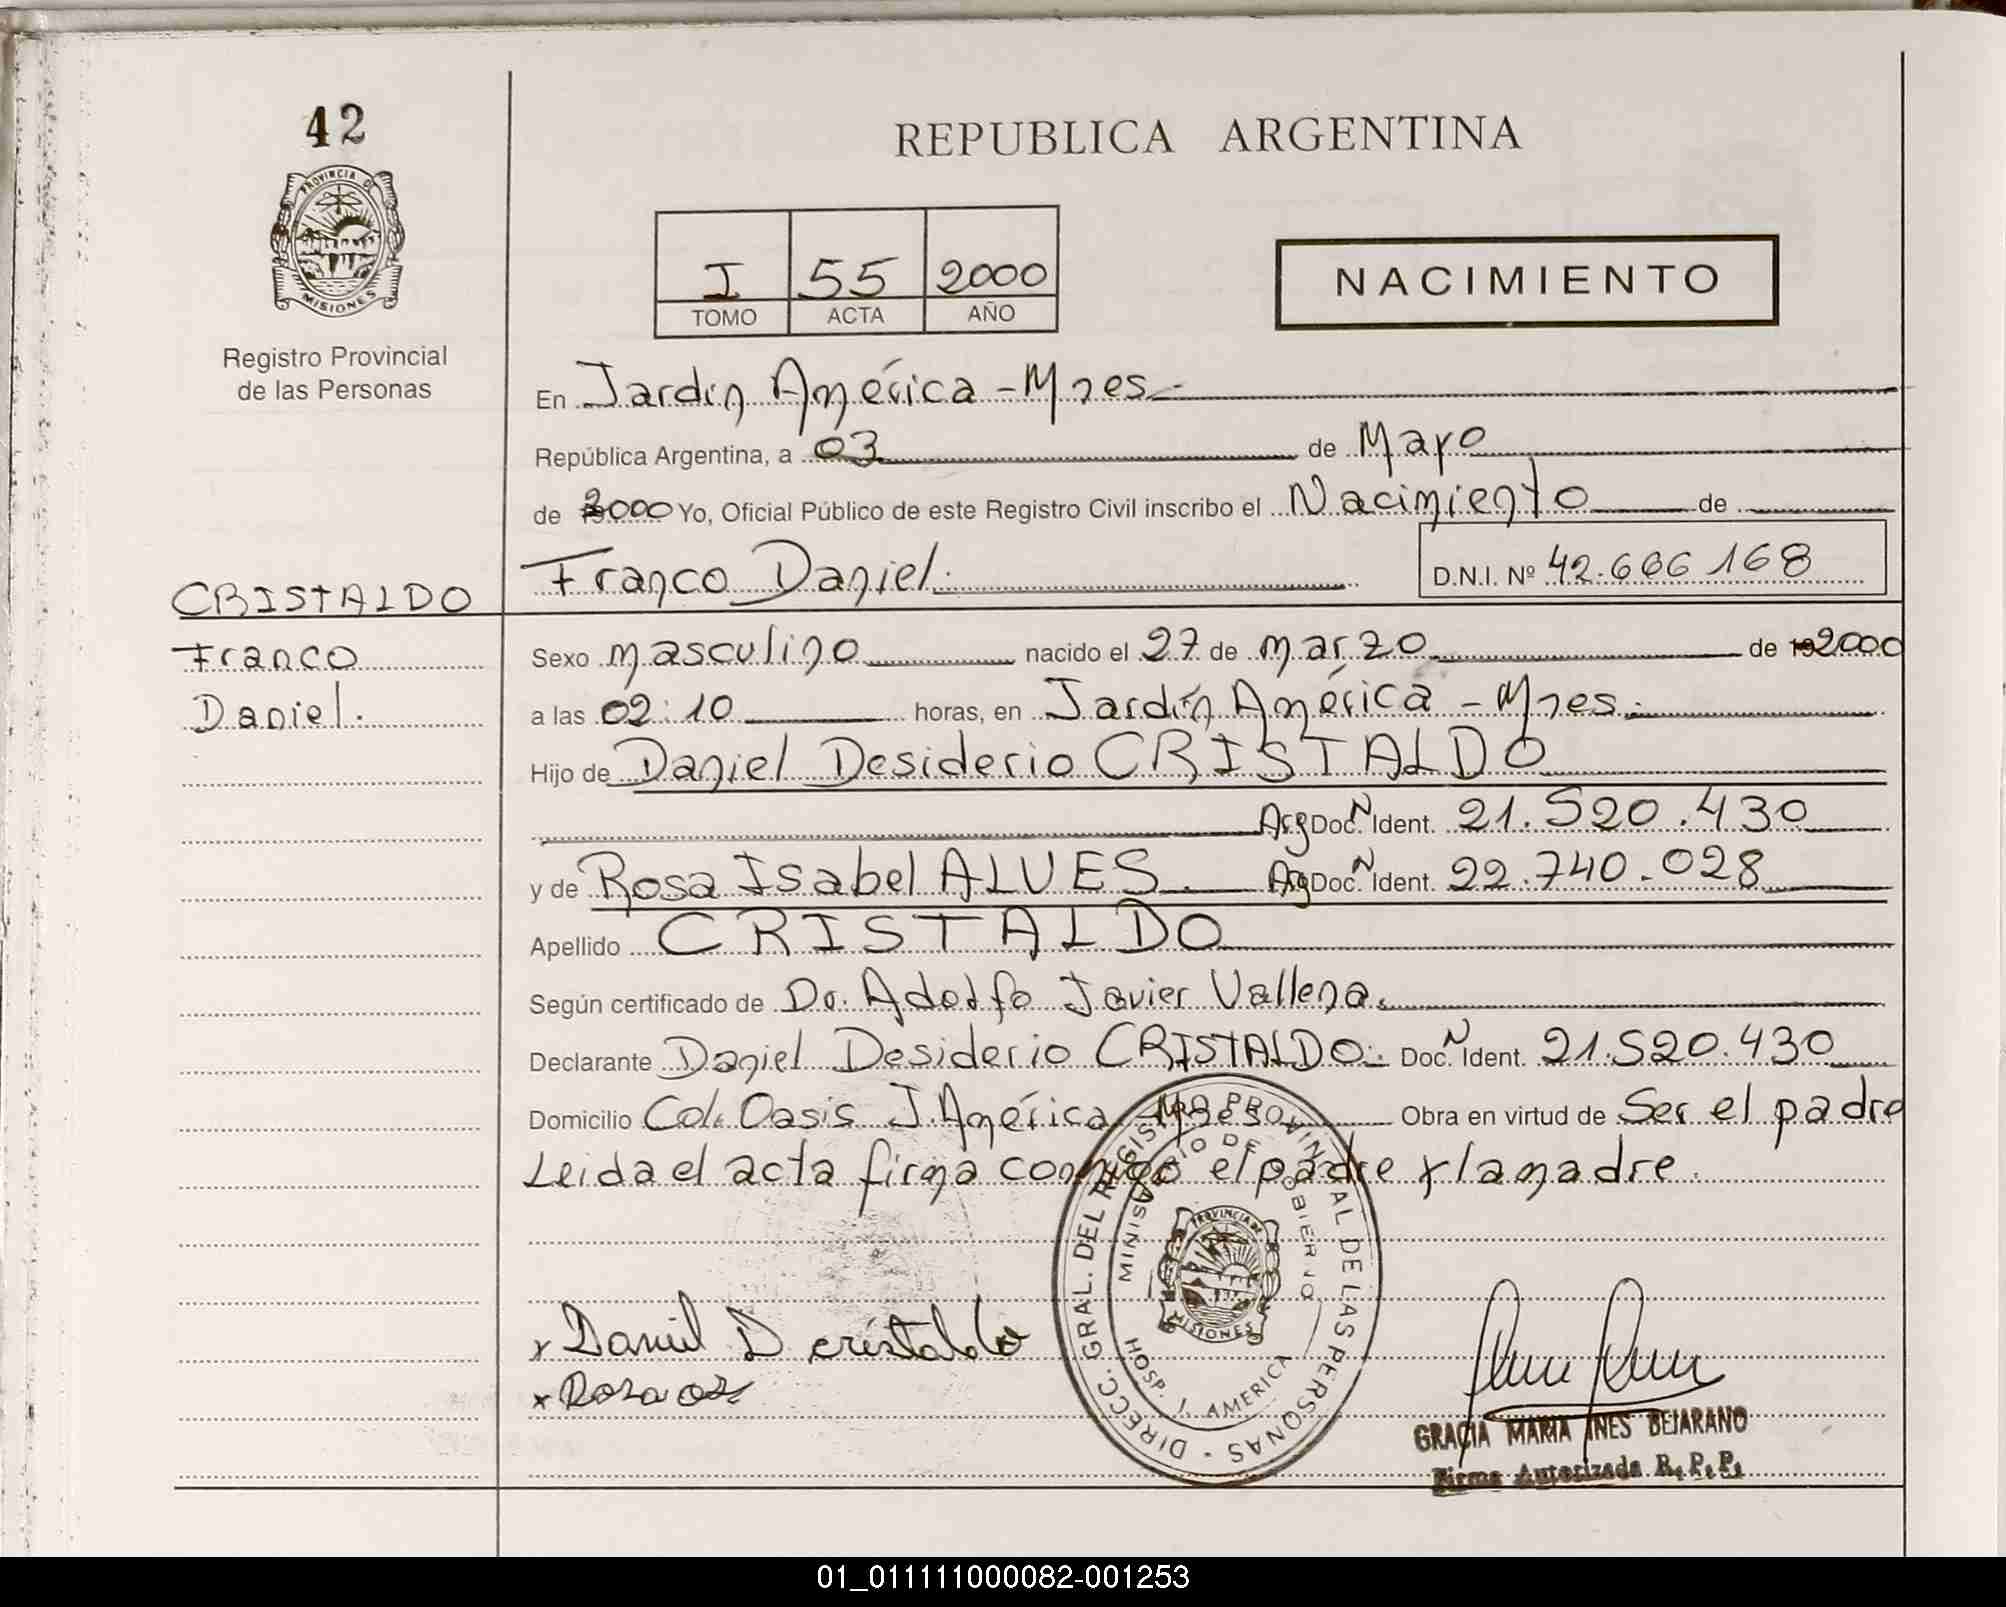 42
PROVINCIA DE
MISIONES
Registro Provincial
de las Personas
REPUBLICA ARGENTINA
I 55 2000
TOMO ACTA AÑO
NACIMIENTO
En Jardín América - Mnes.-
República Argentina, a 03 de Mayo
de 2000 Yo, Oficial Público de este Registro Civil inscribo el Nacimiento de
Franco Daniel.
D.N.I. Nº 42.606.168
CRISTALDO
Franco
Daniel.
Sexo masculino nacido el 27 de marzo de 2000
a las 02:10 horas, en Jardín América - Mnes.-
Hijo de Daniel Desiderio CRISTALDO
Arg Doc. N Ident. 21.520.430
y de Rosa Isabel ALVES. Arg Doc. N Ident. 22.740.028
Apellido CRISTALDO
Según certificado de Dr. Adolfo Javier Vallena.
Declarante Daniel Desiderio CRISTALDO.- Doc. N Ident. 21.520.430
Domicilio Col. Oasis J. América - Mnes Obra en virtud de Ser el padre
Leida el acta firma conmigo el padre y la madre.
DIRECC. GRAL. DEL REGISTRO PROVINCIAL DE LAS PERSONAS -
MINISTERIO DE GOBIERNO
HOSP. J. AMERICA
PROVINCIA DE
MISIONES
x Daniel D cristaldo
x Rosa
GRACIA MARIA INES BEJARANO
Firma Autorizada R.P.P.
01_011111000082-001253